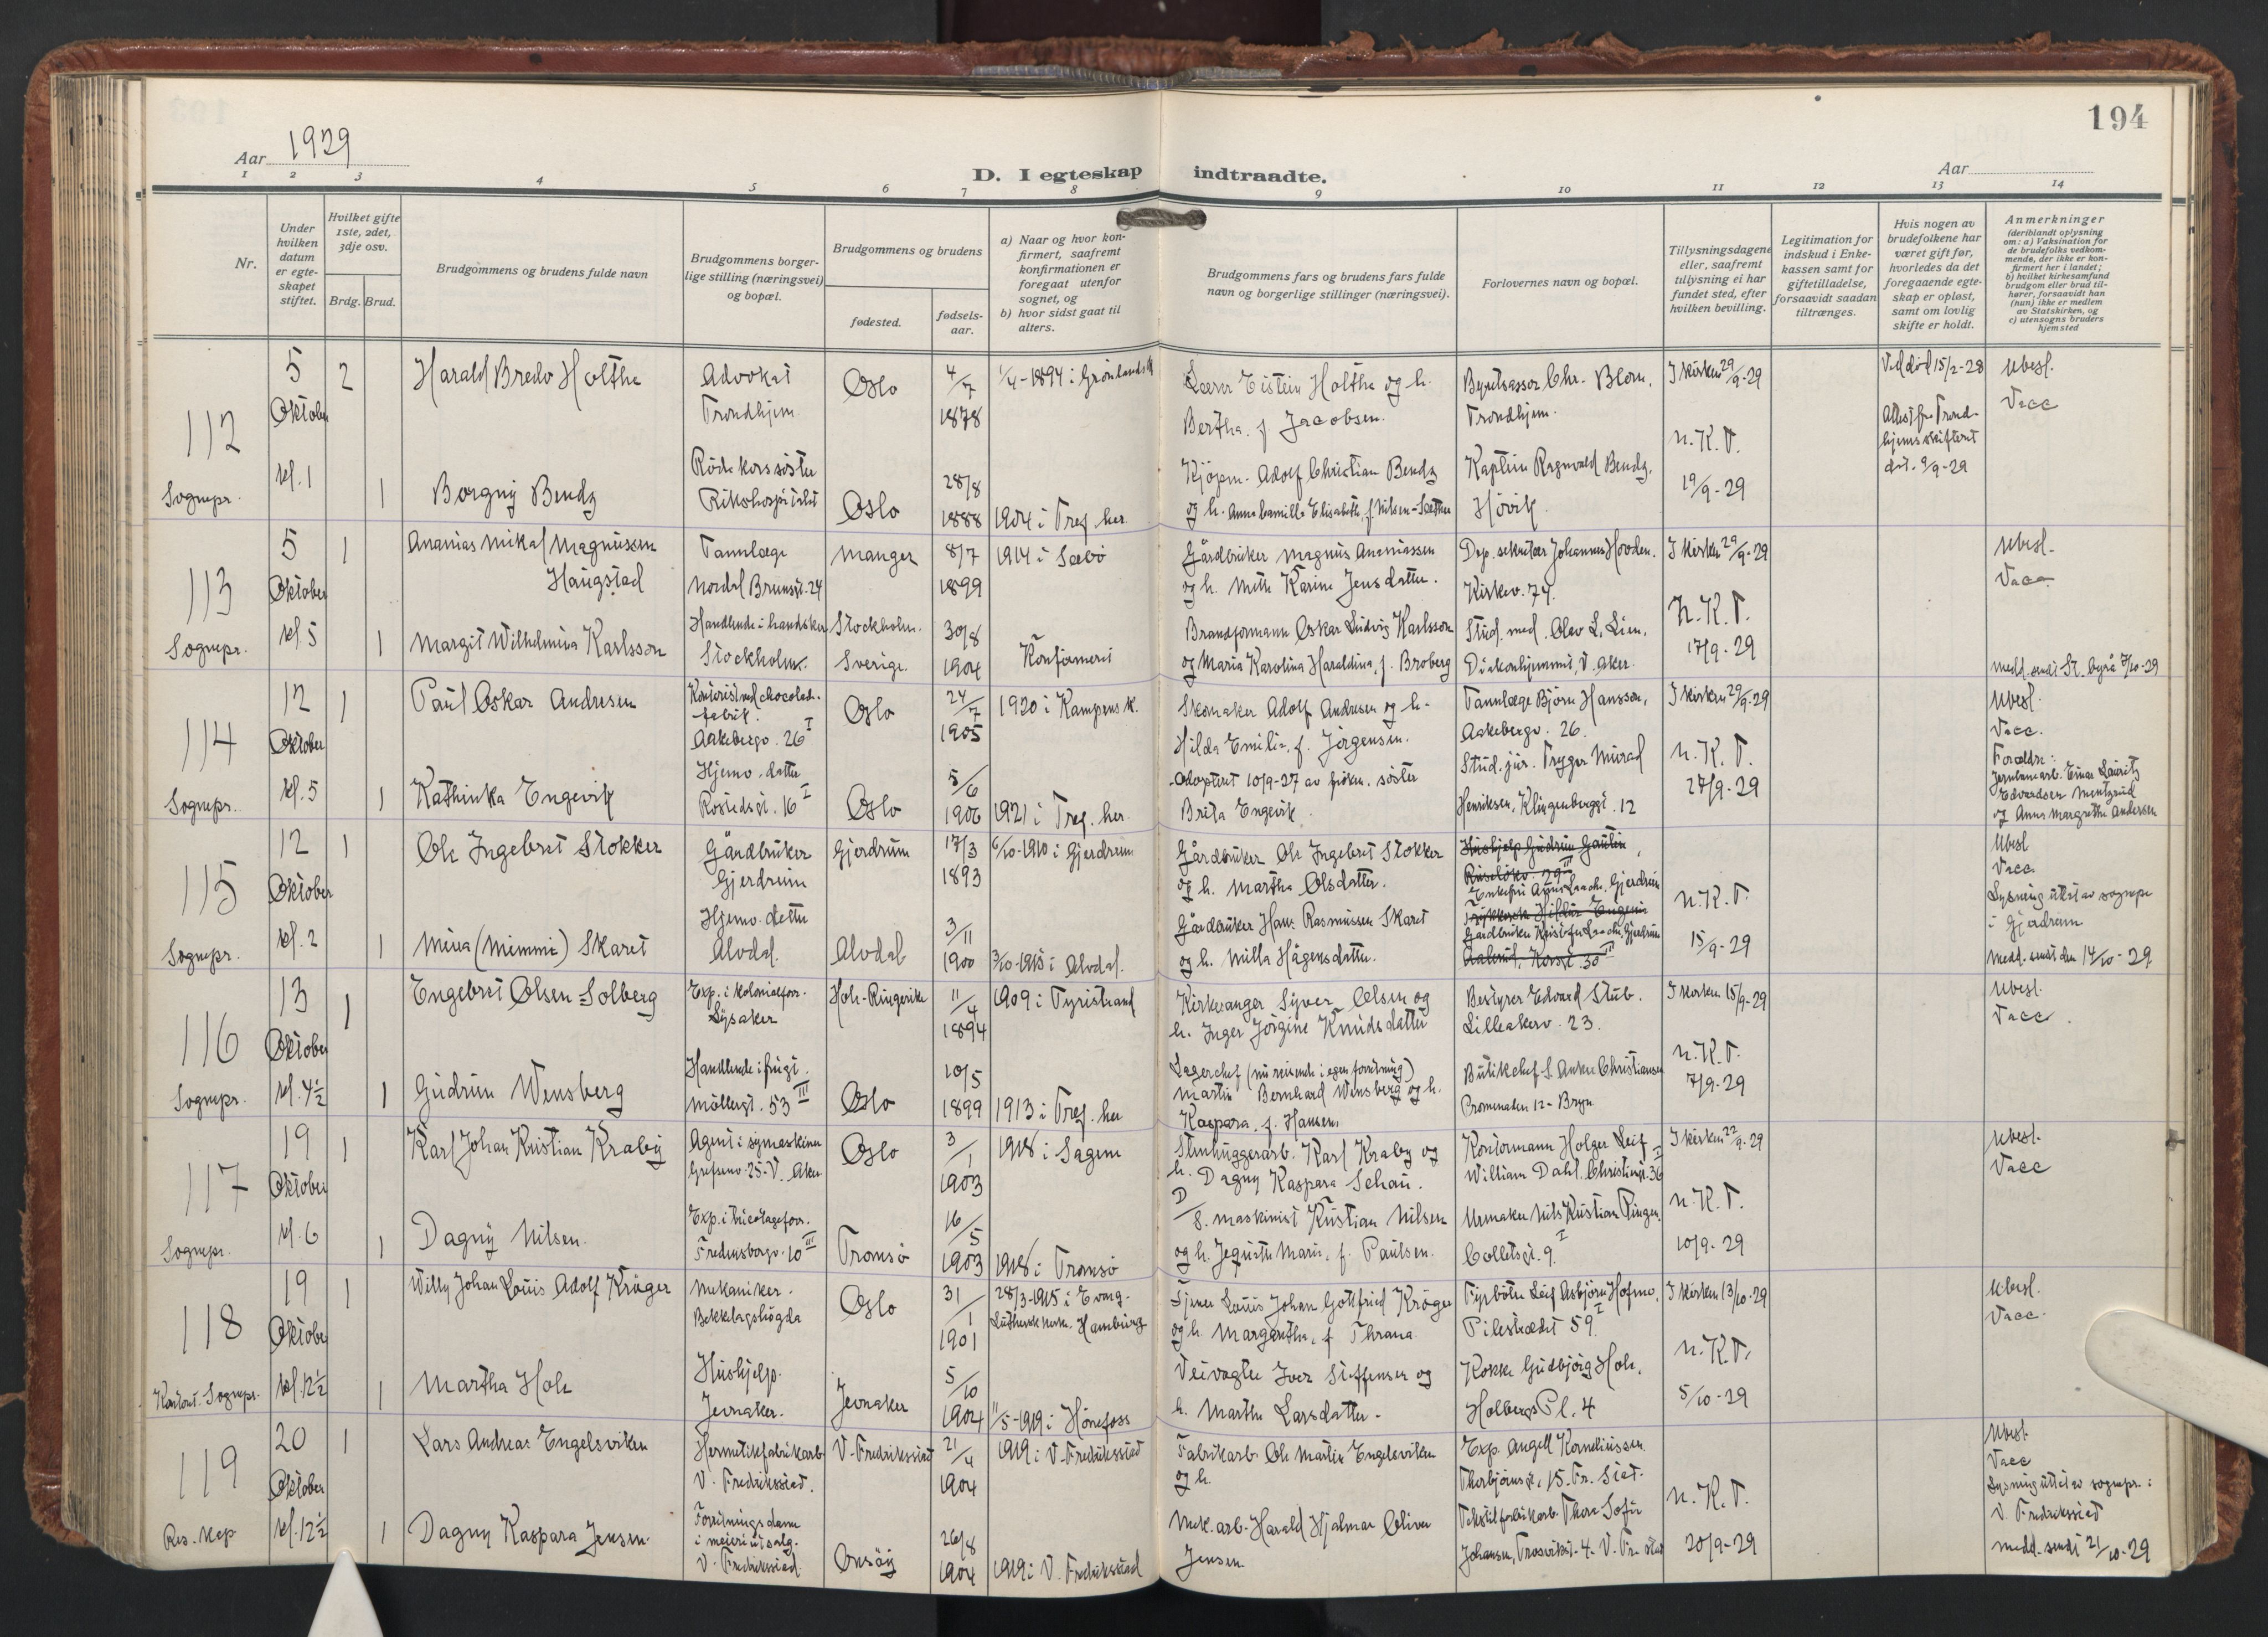 194
Aar 1929
D. I egteskap indtraadte.
Aar
1 2 3 4 5 6 7 8 9 10 11 12 13 14
Nr.
Under hvilken datum er egteskapet stiftet.
Hvilket gifte 1ste, 2det, 3dje osv.
Brdg. Brud.
Brudgommens og brudens fulde navn
Brudgommens borgerlige stilling (næringsvei) og bopæl.
Brudgommens og brudens
fødested.
fødselsaar.
a) Naar og hvor konfirmert, saafremt konfirmationen er foregaat utenfor sognet, og
b) hvor sidst gaat til alters.
Brudgommens fars og brudens fars fulde navn og borgerlige stillinger (næringsvei).
Forlovernes navn og bopæl.
Tillysningsdagene eller, saafremt tillysning ei har fundet sted, efter hvilken bevilling.
Legitimation for indskud i Enkekassen samt for giftetilladelse, forsaavidt saadan tiltrænges.
Hvis nogen av brudefolkene har været gift før, hvorledes da det foregaaende egteskap er opløst, samt om lovlig skifte er holdt.
Anmerkninger (deriblandt oplysning om: a) Vaksination for de brudefolks vedkommende, der ikke er konfirmert her i landet; b) hvilket kirkesamfund brudgom eller brud tilhører, forsaavidt han (hun) ikke er medlem av Statskirken, og c) utensogns bruders hjemsted
112
Sognepr.
5 Oktober kl. 1
2
Harald Bredo Holthe
Advokat
Trondhjem
Oslo
4/7 1878
1/4-1894 i Grønlands k.
Eistein Holthe og h.
Bertha, f. Jacobsen.
Byretsassor Chr. Blom,
Trondhjem.
I kirken 29/9-29
Ved död 15/2-28
Attest fra Trondhjems skifteret dat. 9/9-29
Ubesl.
Vacc
1
Borgny Bendz
Röde kors söster
Rikshospitalet
Oslo
28/8 1888
1904 i Tref. her.
Kjöpm. Adolf Christian Bendz
og h. Anna Camilla Elisabeth, f. Nilsen-Sæther
Kaptein Ragnvald Bendz,
Hövik
n.K.T.
19/9-29
113
Sognepr.
5 Oktober kl. 5
1
Ananias Mikal Magnussen
Haugstad
Tannlæge
Nordal Brunsgt. 24
Manger
8/7 1899
1914 i Sæbö
Gårdbruker Magnus Ananiassen
og h. Mette Karine Jensdatter.
Dep. sekretær Johannes Hovden.
Kirkev. 74.
I kirken 29/9-29
Ubesl.
Vacc.
1
Margit Wilhelmina Karlsson
Handlende i handsker
Stockholm.
Stockholm.
Sverige.
30/8 1904
Konfirmert
Brandformann Oskar Ludvig Karlsson
og Maria Karolina Haraldina, f. Broberg
Stud. med. Olav L. Lien,
Diakonhjemmet, V. Aker.
N.K.T.
17/9-29
medd. sendt St. byrå 7/10-29
114
Sognepr.
12 Oktober kl. 5
1
Paul Oskar Andresen
Kontorist ved chocoladefabrik.
Aakebergv. 26 I
Oslo
24/7 1905
1920 i Kampens k.
Skomaker Adolf Andresen og h.
Hilda Emilie, f. Jörgensen.
Tannlæge Björn Hansson,
Aakebergv. 26.
I kirken 29/9-29
Ubesl.
Vacc.
1
Kathinka Engevik
Hjemv. datter
Rostedsgt. 16 I
Oslo
5/6 1906
1921 i Tref. her.
Adoptert 10/9-27 av fröken, söster
Brita Engevik.
Stud. jur. Trygve Murad
Henriksen, Klingenberggt. 12
n.K.T.
27/9-29
Foreldre:
Jernbanearb. Einar Lauritz
Edvardsen Mentzrud
og Anna Margrethe Andersen
115
Sognepr.
12 Oktober kl. 2
1
Ole Ingebret Stokker
Gårdbruker
Gjerdrum
Gjerdrum
17/3 1893
6/10-1910 i Gjerdrum
Gårdbruker Ole Ingebret Stokker
og h. Martha Olsdatter.
Enkefru Anna Laache, Gjerdrum
Ubesl
Vacc
Lysning uttat av sognepr.
i Gjerdrum
1
Mina (Mimmi) Skaret
Hjemv. datter
Alvdal.
Alvdal
3/11 1900
3/10-1915 i Alvdal.
Gårdbruker Hans Rasmussen Skaret
og h. Milla Hågensdatter.
Gårdbruker Kristofer Laache, Gjerdrum
n.K.T.
15/9-29
Medd. sendt den 14/10-29
116
Sognepr.
13 Oktober kl. 4½
1
Engebret Olsen Solberg
Exp. i kolonialforr.
Lysaker
Hole-Ringerike
11/4 1894
1909 i Tyristrand
Kirkesanger Syver Olsen og
h. Inger Jörgine Knudsdatter
Bestyrer Edvard Stub.
Lilleakerv. 23.
I kirken 15/9-29
Ubesl.
Vacc.
1
Gudrun Wensberg
Handlende i frugt.
Möllergt. 53 III
Oslo
10/5 1899
1913 i Tref. her
Lagerchef (nu reisende i egen forretning)
Martin Bernhard Wensberg og h.
Kaspara, f. Hansen.
Butikchef S. Anker Christiansen
Promenaden 12 - Bryn
n.K.T.
7/9-29
117
Sognepr.
19 Oktober kl. 6
1
Karl Johan Kristian Kraby
Agent i symaskiner
Grefsenv. 25-V. Aker
Oslo
3/1 1903
1918 i Sagene
Stenhuggerarb. Karl Kraby og
h. Dagny Kaspara Schau.
Kontormann Holger Leif
William Dahl, Christiesgt. 36 I
I kirken 22/9-29
Ubesl.
Vacc
1
Dagny Nilsen.
Exp. i tricotageforr.
Fredensborgv. 10 III
Tromsö
16/5 1903
1918 i Tromsö
D/S. maskinist Kristian Nilsen
og h. Jegusta Marie, f. Paulsen.
Urmaker Nils Kristian Finger,
Colletsgt. 9 I
n.K.T.
10/9-29
118
Konst. Sognepr.
19 Oktober kl. 12½
1
Willy Johan Louis Adolf Kröger
Mekaniker.
Bekkelagshögda
Oslo
31/1 1901
28/3-1915 i Evang-
Luthersk kirke, Hamburg
Tjener Louis Johan Gottfried Kröger
og h. Margaretha, f. Thrana
Fyrböter Leif Asbjörn Hofmo,
Pilestrædet 59 I
I kirken 13/10-29
Ubesl.
Vacc.
1
Martha Hole
Hushjelp.
Jevnaker.
Jevnaker
5/10 1904
11/5-1919 i Hönefoss
Veivogter Iver Steffensen og
h. Marthe Larsdatter.
Kokke Gudbjörg Hole,
Holbergs Pl. 4
n.K.T.
5/10-29
119
Res. kap
20 Oktober kl. 12½
1
Lars Andreas Engelsviken
Hermetikfabrikarb.
V. Fredriksstad.
V-Fredriksstad
21/4 1904
1919 i V-Fredriksstad
Fabrikarb. Ole Martin Engelsviken
og h.
Exp. Angell Korneliussen
Thorbjörnsgt. 15. Fr. Stad.
Ubesl.
Vacc
Lysning uttat av sognepr. i
V. Fredriksstad
1
Dagny Kaspara Jensen.
Forretningsdame
i meieriutsalg.
V. Fredriksstad.
Onsöy
26/8 1904
1919 i V. Fredriksstad
Mek. arb. Harald Hjalmar Oliver
Jensen.
Tekstilfabrikarb. Thora Sofie
Johansen, Trosvikst. 4. V. Fr. stad
n.K.T.
20/9-29
medd. sendt 21/10-29